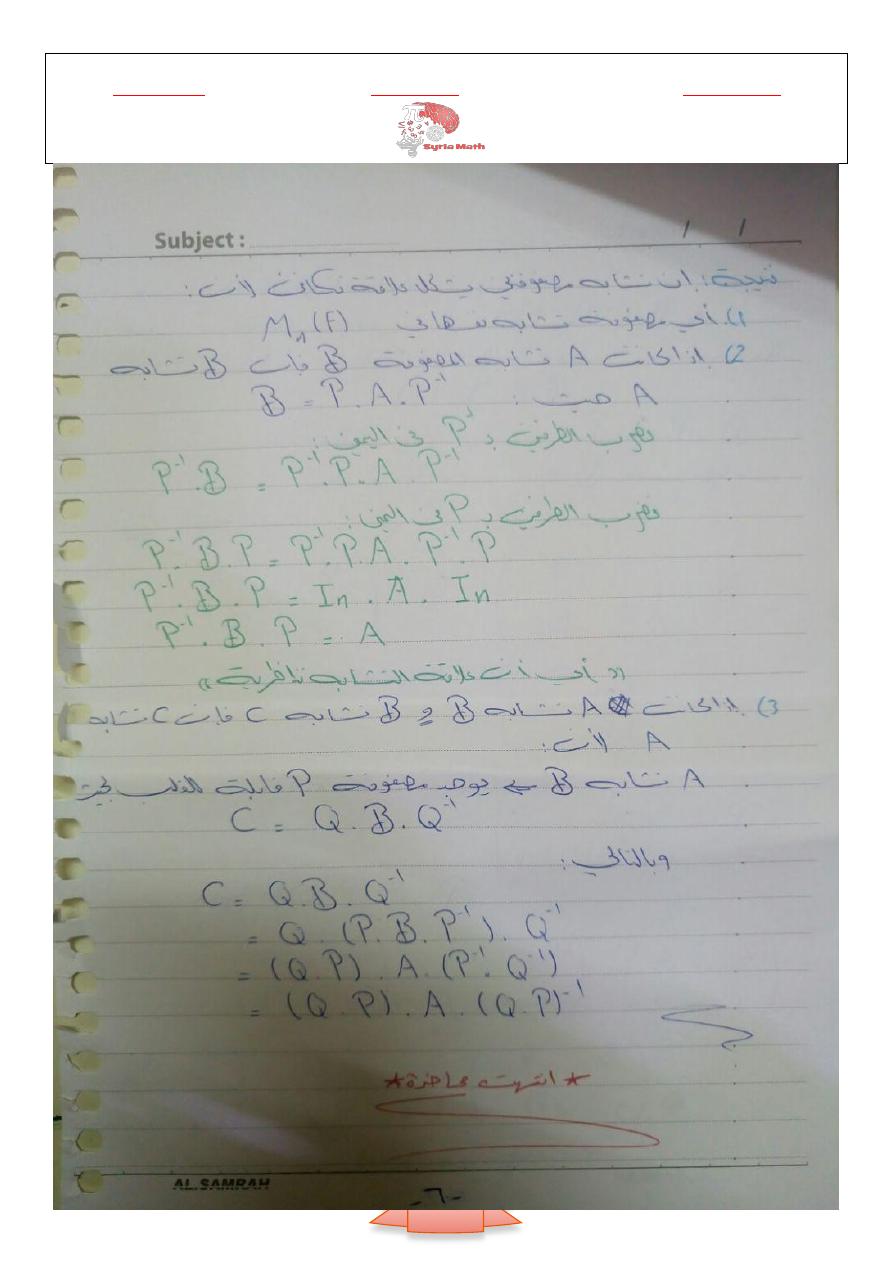 Syria Math
Subject :
/ /
نتيجة: إن تشابه مصفوفتين يشكل علاقة تكافؤ لأن:
1). أي مصفوفة تشابه نفسها في Mn(F)
2). إذا كانت A تشابه المصفوفة B فإن B تشابه
A حيث : B = P.A.P⁻¹
نضرب الطرفين بـ P⁻¹ من اليمين:
P⁻¹.B = P⁻¹.P.A.P⁻¹
نضرب الطرفين بـ P من اليمين:
P⁻¹.B.P = P⁻¹.P.A.P⁻¹.P
P⁻¹.B.P = In . A . In
P⁻¹.B.P = A
«أي أن علاقة التشابه تناظرية»
3). إذا كانت A تشابه B و B تشابه C فإن C تشابه
A لأن:
A تشابه B ⇐ يوجد مصفوفة P قابلة للقلب بحيث
C = Q.B.Q⁻¹
وبالتالي:
C = Q.B.Q⁻¹
= Q.(P.B.P⁻¹).Q⁻¹
= (Q.P).A.(P⁻¹.Q⁻¹)
= (Q.P).A.(Q.P)⁻¹
* انتهت محاضرة *
AL SAMRAH
-٦-